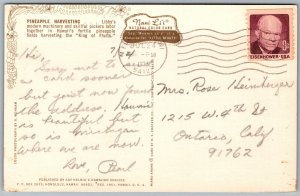 PINEAPPLE HARVESTING
Libby's
modern machinery and skillful pickers labor
together in Hawaii's fertile pineapple
fields harvesting the "King of Fruits."
Nani Li'i
NATURAL COLOR CARD
EISENHOWER·USA
Hi,
Sorry not to
card sooner
but just now found
the address. Hawaii
is beautiful but
so is Michigan
where we are now.
Love, Pearl
Mrs. Rose Heinberger
1215 W. 4th St
Ontario, Calif
91762